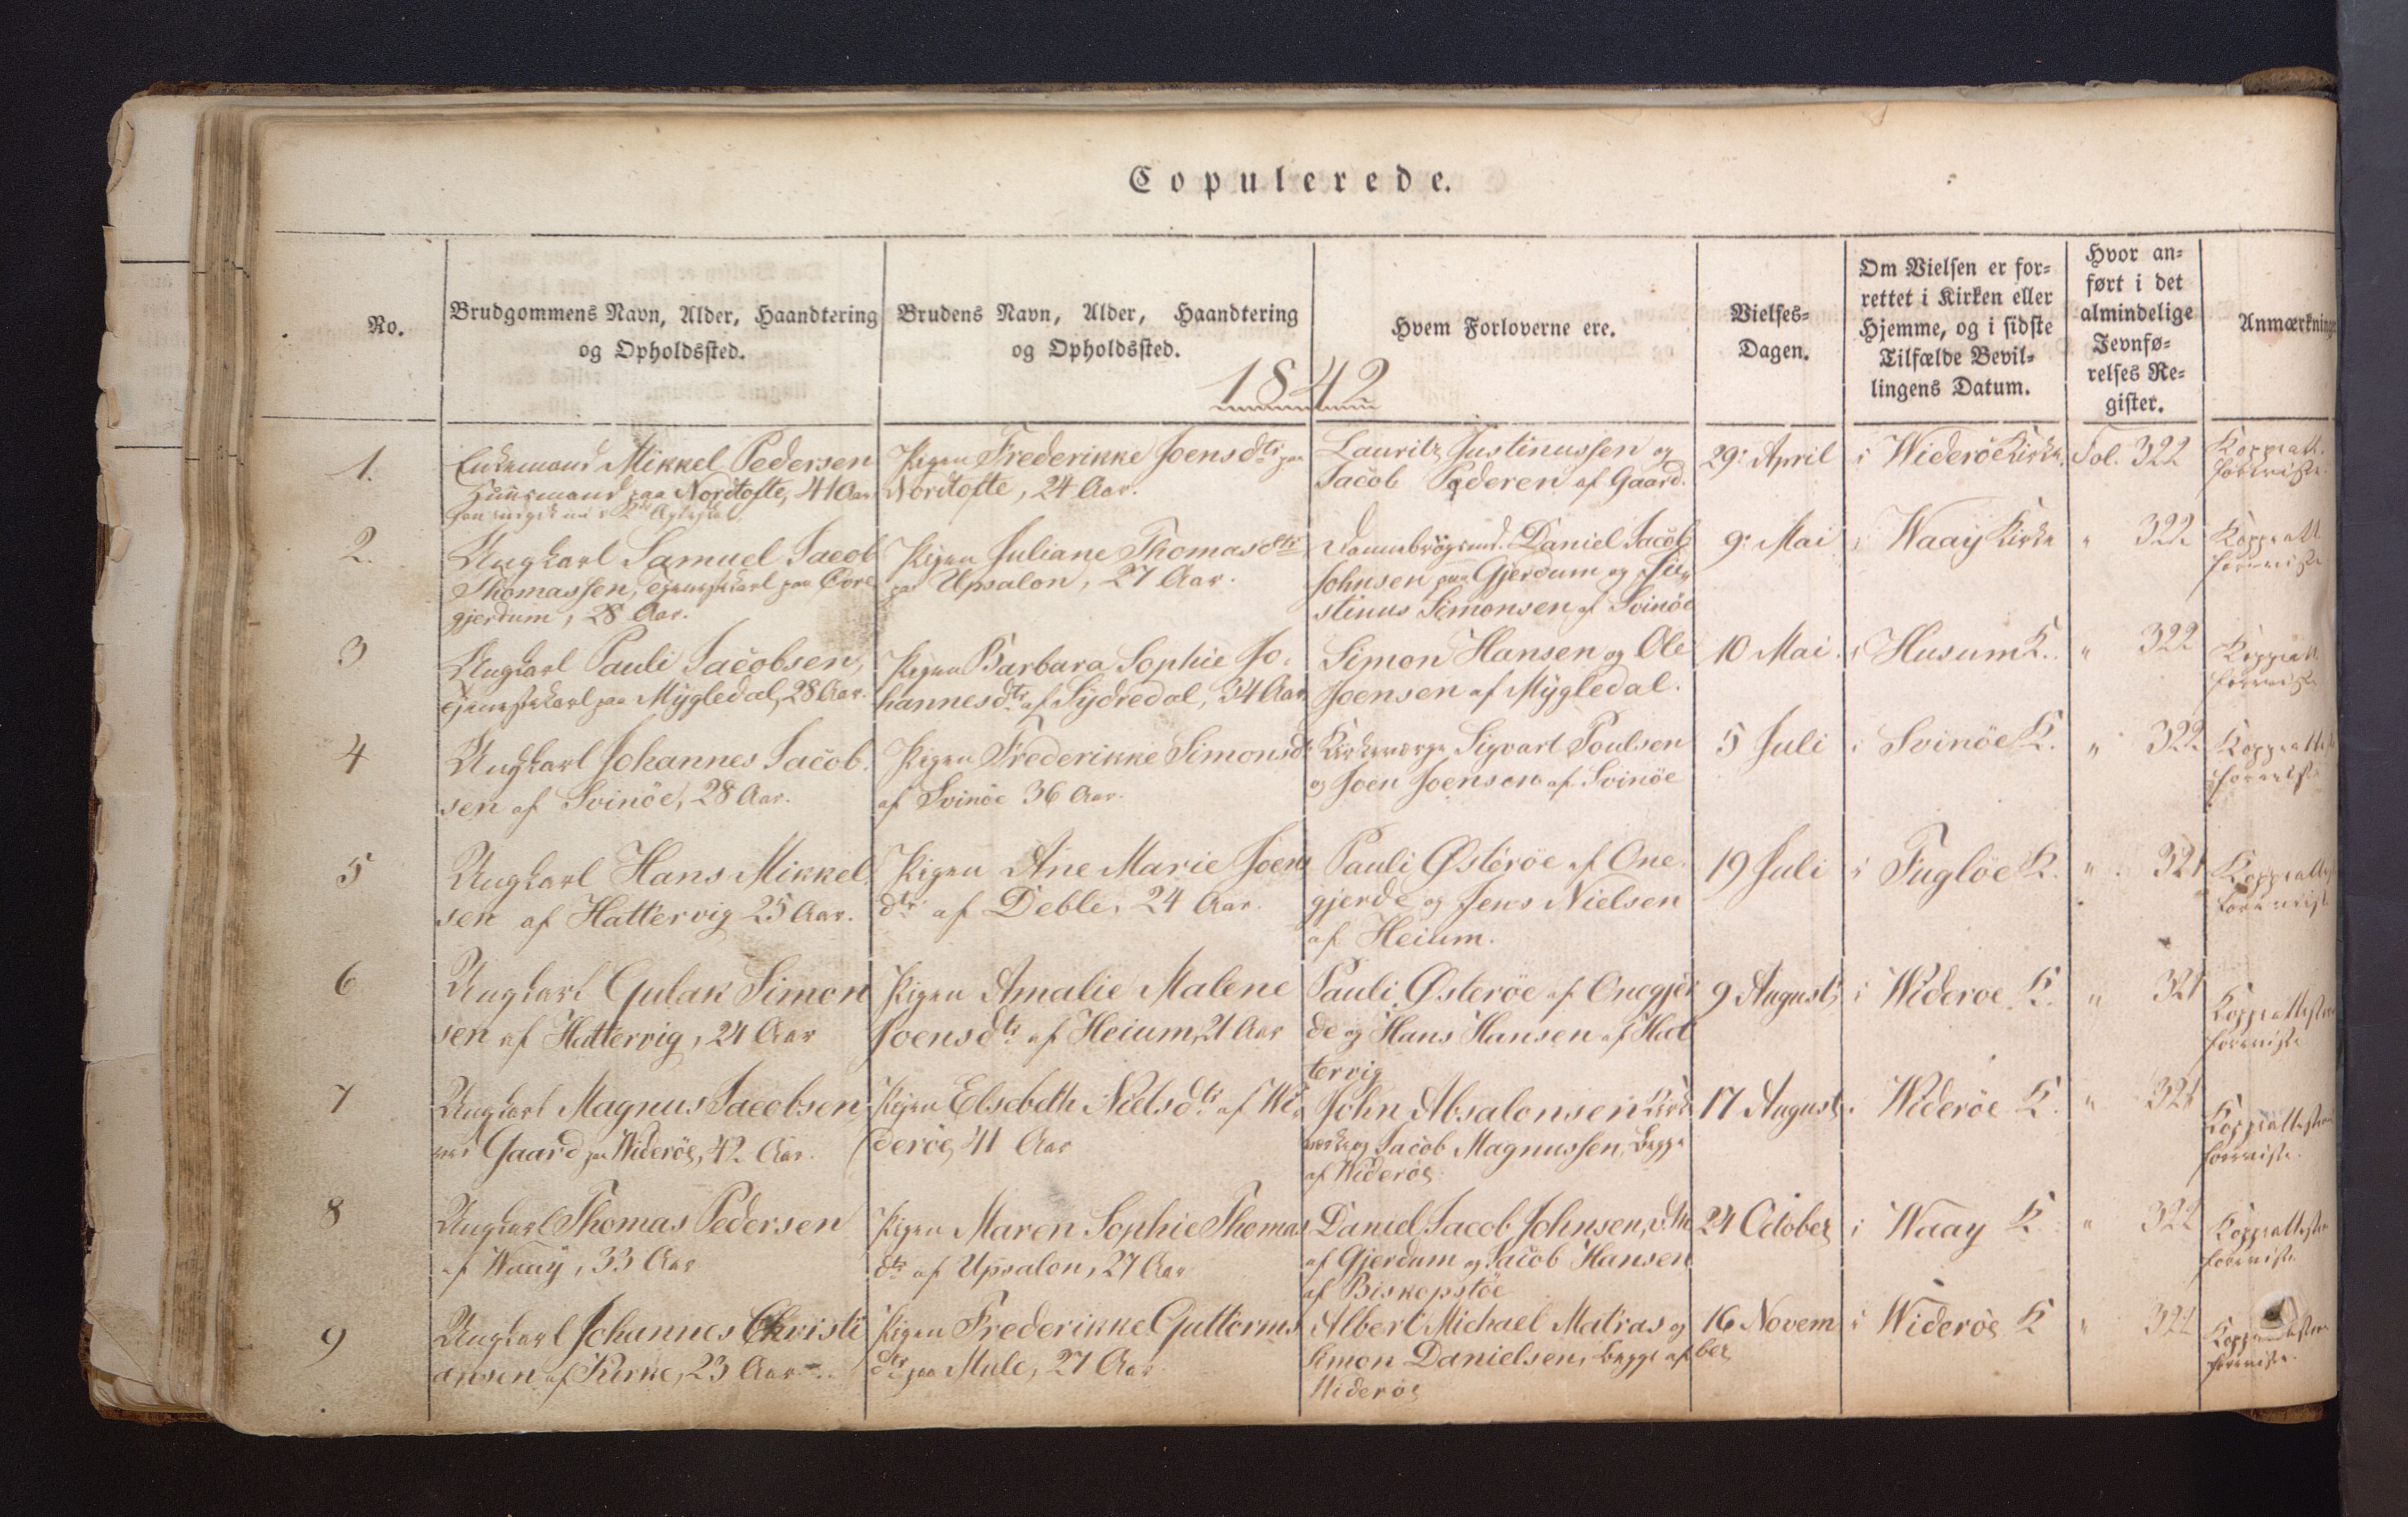 Copulerede.
No.
Brudgommens Navn, Alder, Haandtering
og Opholdssted.
Brudens Navn, Alder, Haandtering
og Opholdssted.
Hvem Forloverne ere.
Vielses-
Dagen.
Om Vielsen er for-
rettet i Kirken eller
Hjemme, og i sidste
Tilfælde Bevil-
lingens Datum.
Hvor an-
ført i det
almindelige
Jevnfø-
relses Re-
gister.
Anmærkninge
1842
1.
Enkemand Mikkel Pedersen
Huusmand paa Nordtofte, 41 Aar
Pigen Frederikke Joensdtr paa
Nordtofte, 24 Aar.
Lauritz Justinussen og
Jacob Pederen af Gaard.
29: April
i Widerøe Kirke.
Fol. 322
Koppeatt.
foreviste.
2.
Ungkarl Samuel Jacob
Thomassen, Tjenestekarl paa Øvre
gjerdum, 28 Aar.
Pigen Juliane Thomasdtr
paa Upsalon, 27 Aar.
Dannebrogsmd. Daniel Jacob
Johnsen paa Gjerdum og Ju-
stinus Simonsen af Svinöe
9: Mai
i Waay Kirke
" 322
Koppeatt
foreviste
3
Ungkarl Pauli Jacobsen,
Tjenestekarl paa Mÿgledal, 28 Aar.
Pigen Barbara Sophie Jo-
hannesdtr af Sÿdredal, 34 Aar
Simon Hansen og Ole
Joensen af Mÿgledal.
10 Mai.
i Husum K.
" 322
Koppeatt
foreviste
4
Ungkarl Johannes Jacob-
sen af Svinöe, 28 Aar.
Pigen Frederikke Simonsdr
af Svinöe 36 Aar.
Kirkeværge Sigvart Poulsen
og Joen Joensen af Svinöe
5 Juli
i Svinöe K.
" 322
Koppeatte
foreviste
5
Ungkarl Hans Mikkel-
sen af Hattervig 25 Aar.
Pigen Ane Marie Joens
dtr af Deble, 24 Aar.
Pauli Østeröe af One-
gjerde og Jens Nielsen
af Heium.
19 Juli
i Fuglöe K.
" 321
Koppeatte
foreviste
6
Ungkarl Gulak Simon
sen af Hattervig, 24 Aar
Pigen Amalie Malene
Joensdtr af Heium, 21 Aar
Pauli Østeröe af Onegjer
de og Hans Hansen af Hat
tervig
9 August,
i Wideroe K.
" 321
Koppeatteste
foreviste
7
Ungkarl Magnus Jacobsen
ved Gaard paa Wideröe, 42 Aar.
Pigen Elsebeth Nielsdtr af Wi-
deröe, 41 Aar
John Absalonsen Kirke
værge og Jacob Magnussen, begge
af Wideröe
17 August
i Wideröe K.
" 321
Koppeatteste
foreviste.
8
Ungkarl Thomas Pedersen
af Waaÿ, 33 Aar
Pigen Maren Sophie Thomas
dtr af Upsalon, 27 Aar
Daniel Jacob Johnsen, D.M
af Gjerdum og Jacob Hansen
af Biskopstöe
24 October
i Waay K
" 322
Koppeatteste
foreviste.
9
Ungkarl Johannes Christi
ansen af Kirke, 23 Aar
Pigen Frederikke Guttorms
dtr paa Mule, 27 Aar
Albert Michael Matras og
Simon Danielsen, begge af
Wideröe
16 Novem
ber
i Wideröe K
" 322
foreviste.